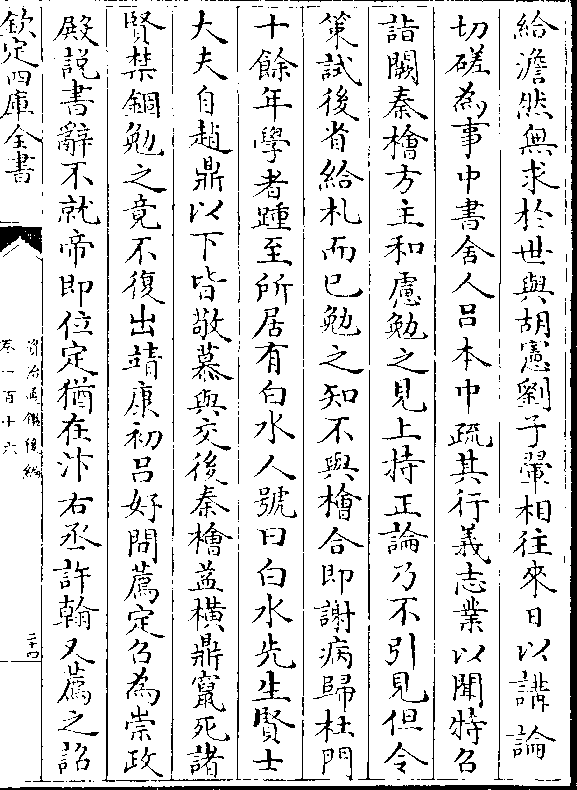 給澹然無求於世與胡憲劉子翬相往來日以講論
切磋為事中書舍人呂本中疏其行義志業以聞特召
詣闕秦檜方主和慮勉之見上持正論乃不引見但令
策試後省給札而已勉之知不與檜合即謝病歸杜門
十餘年學者踵至所居有白水人號曰白水先生賢士
大夫自趙鼎以下皆敬慕與交後秦檜益橫鼎竄死諸
賢禁錮勉之竟不復出靖康初呂好問薦定召為崇政
殿說書辭不就帝即位定猶在汴右丞許翰又薦之詔
欽定四庫全書
資治通鑑後編
卷一百十六
二十四